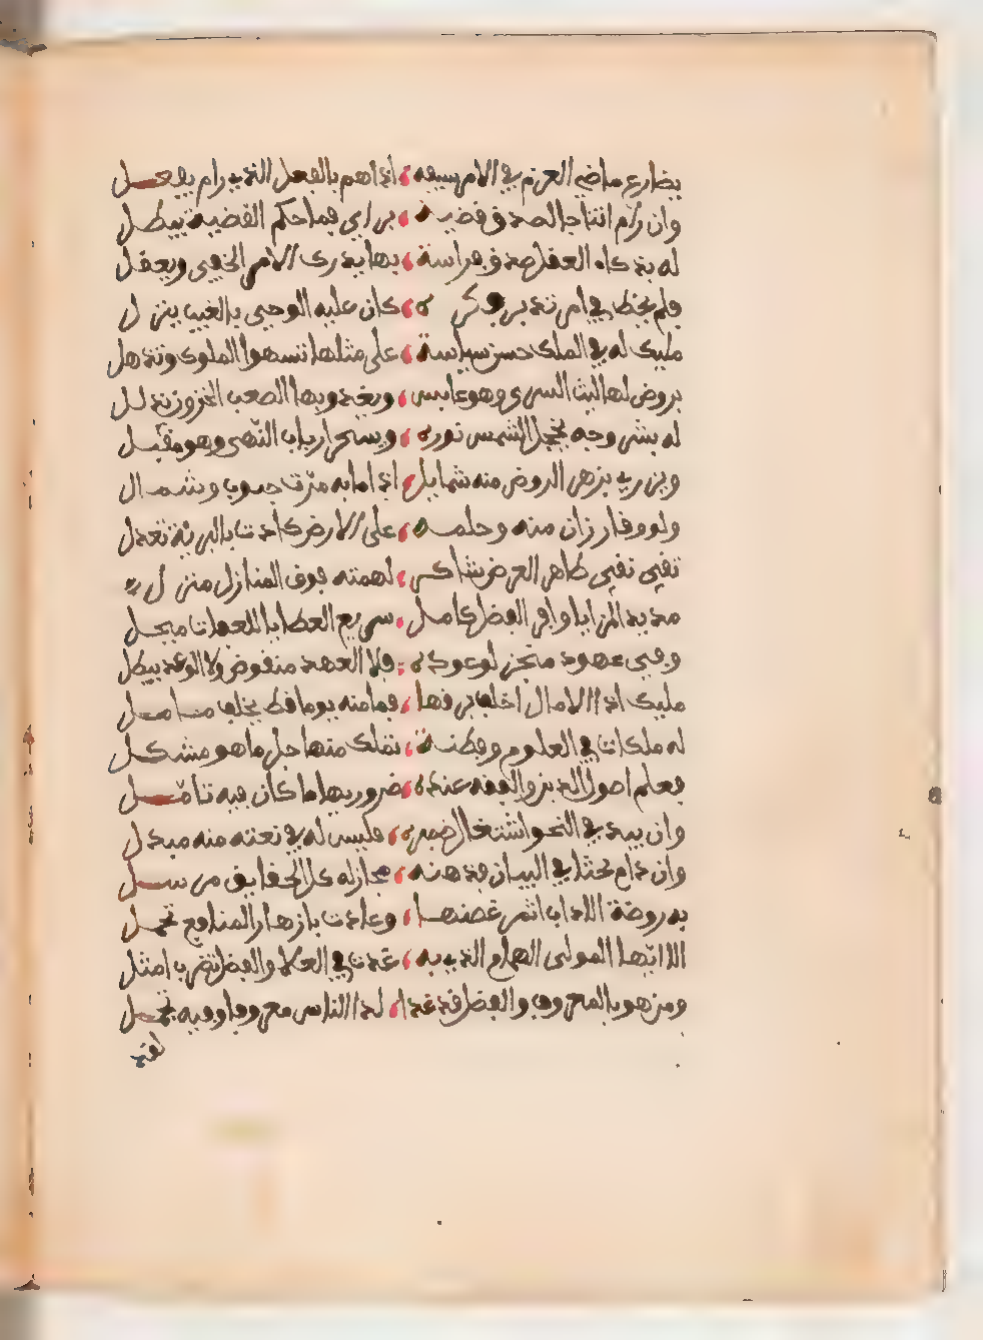 يضارع ماضي العزم في الامر سيفه ، اذا هم بالفعل الذي رام يفعل
وان رام انتاجا لصدق قضية ، براي فما حكم القضية يبطل
له بذكاء العقل صدق فراسة ، بها يدرى الامر الخفي ويعقل
فلم يخط في امر تدبر فكره ، كان عليه الوحي بالغيب ينزل
مليك له في الملك حسن سياسة ، على مثلها تسهوا الملوك وتذهل
يروض لها ليث السرى وهو عابس ، ويغدو بها الصعب الحزوز يذلل
له بشر وجه يخجل الشمس نوره ، ويسحر ارباب النهى وهو مقبل
ويزري بزهر الروض منه شمايل ، اذا ما به مرت جنوب وشمال
ولو وقار زان منه وحلمه ، على الارض كادت بالبرية تعدل
تقي نقي طاهر العرض شاكر ، لهمته فوق المنازل منزل
مديد المزايا وافر الفضل كامل ، سريع العطايا للعفات مبجل
وفي عهود منجز لوعوده ، فلا العهد منقوض ولا الوعد يبطل
مليك اذا الامال اخلف برقها ، فما منه يوما قط يخلف مامل
له ملكات في العلوم وفطنة ، تملك منها حل ما هو مشكل
فعلم اصول الدين والفقه عنده ، ضروريها ما كان فيه تامل
وان يبد في النحو اشتغال ضميره ، فليس له في نعته منه مبدل
وان دام بحثا في البيان فذهنه ، مجاز له كل الحقايق مرسل
به روضة الاداب اثمر غصنها ، وعادت بازهار المنافع تحمل
الا ايها المولى الهمام الذي به ، غدت في العلا والفضل تضرب امثل
ومن هو بالمعروف والفضل قد غدا ، لدا الناس معروفا وفيه تجمل
لقد